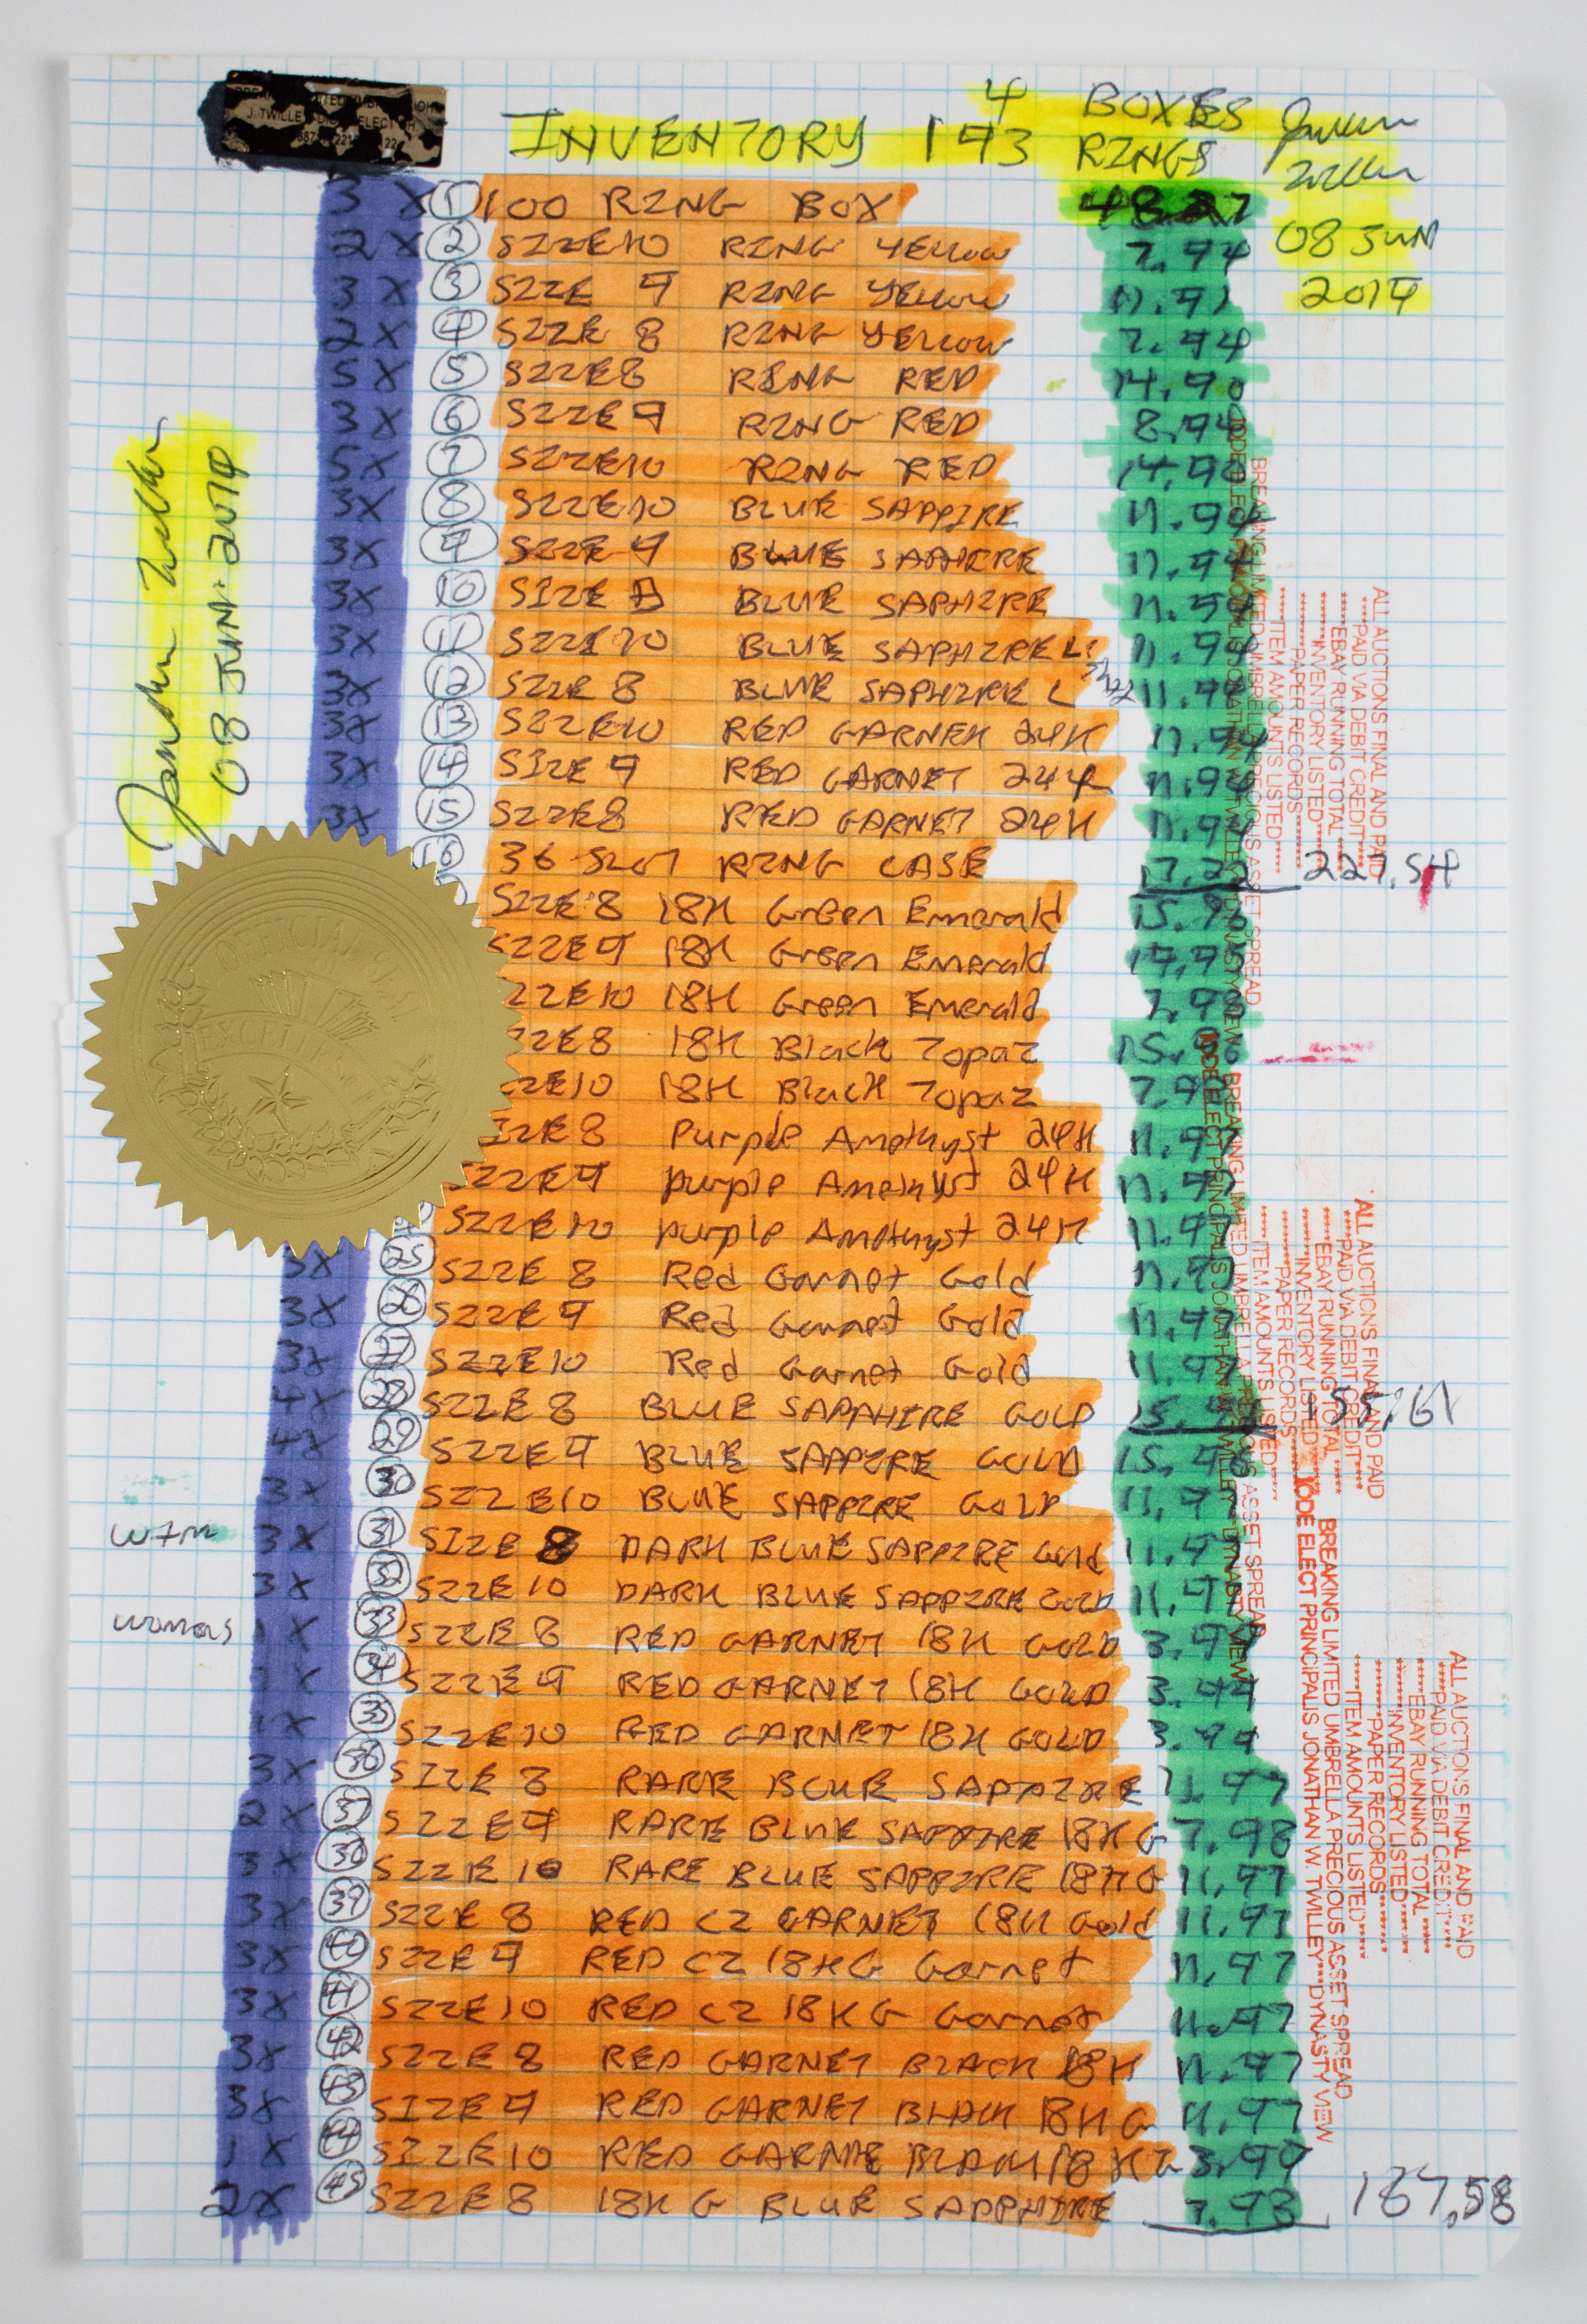 4 BOXES
INVENTORY 193 RINGS
08 JUN
2019
3 X 1 100 RING BOX 48.27
2 X 2 SIZE 10 RING YELLOW 7.94
3 X 3 SIZE 9 RING YELLOW 11.91
2 X 4 SIZE 8 RING YELLOW 7.94
5 X 5 SIZE 8 RING RED 14.90
3 X 6 SIZE 9 RING RED 8.94
5 X 7 SIZE 10 RING RED 14.90
3X 8 SIZE 10 BLUE SAPPIRE 11.94
3X 9 SIZE 9 BLUE SAPHIRE 11.94
3X 10 SIZE 8 BLUE SAPHIRE 11.94
3X 11 SIZE 10 BLUE SAPHIRE 11.94
3X 12 SIZE 8 BLUE SAPHIRE L 11.94
3X 13 SIZE 10 RED GARNEK 24K 11.94
3X 14 SIZE 9 RED GARNET 24K 11.94
3X 15 SIZE 8 RED GARNET 24K 11.94
16 36 SLOT RING CASE 17.22 227.54
SIZE 8 18K Green Emerald 15.96
SIZE 9 18K Green Emerald 19.95
IZE 10 18K Green Emerald 7.98
ZE 8 18K Black Topaz 15.96
ZE 10 18K Black Topaz 7.98
IZE 8 Purple Amethyst 24K 11.97
SIZE 9 purple Amethyst 24K 11.97
SIZE 10 purple Amethyst 24K 11.97
3X 25 SIZE 8 Red Garnet Gold 11.97
3X 26 SIZE 9 Red Garnet Gold 11.97
3X 27 SIZE 10 Red Garnet Gold 11.97
4X 28 SIZE 8 BLUE SAPAHIRE GOLD 15.96 155.61
4X 29 SIZE 9 BLUE SAPPIRE GOLD 15.96
3X 30 SIZE 10 BLUE SAPPIRE GOLD 11.97
3X 31 SIZE 8 DARK BLUE SAPPIRE Gold 11.97
3X 32 SIZE 10 DARK BLUE SAPPIRE GOLD 11.97
womens 1 X 33 SIZE 8 RED GARNET 18K GOLD 3.99
1 X 34 SIZE 9 RED GARNET 18K GOLD 3.99
1 X 35 SIZE 10 RED GARNET 18K GOLD 3.99
3X 36 SIZE 8 RARE BLUE SAPPIRE 11.97
2X 37 SIZE 9 RARE BLUE SAPPIRE 18K G 7.98
3X 38 SIZE 10 RARE BLUE SAPPIRE 18K G 11.97
3X 39 SIZE 8 RED CZ GARNET 18K Gold 11.97
3X 40 SIZE 9 RED CZ 18KG Garnet 11.97
3X 41 SIZE 10 RED CZ 18KG Garnet 11.97
3X 42 SIZE 8 RED GARNET BLACK 18K 11.97
3X 43 SIZE 9 RED GARNET BLACK 18K G 11.97
1 X 44 SIZE 10 RED GARNE 18K G 3.99
2X 45 SIZE 8 18K G BLUE SAPPHIRE 7.98 187.58
08 JUN 2019
OFFICIAL SEAL
EXCELLENCE
ALL AUCTIONS FINAL AND PAID
PAID VIA DEBIT CREDIT
EBAY RUNNING TOTAL
INVENTORY LISTED
PAPER RECORDS
ITEM AMOUNTS LISTED
BREAKING LIMITED UMBRELLA PRECIOUS ASSET SPREAD
IODE ELECT PRINCIPALIS JONATHAN W. TWILLEY DYNASTY VIEW
ALL AUCTIONS FINAL AND PAID
PAID VIA DEBIT CREDIT
EBAY RUNNING TOTAL
INVENTORY LISTED
PAPER RECORDS
ITEM AMOUNTS LISTED
BREAKING LIMITED UMBRELLA PRECIOUS ASSET SPREAD
IODE ELECT PRINCIPALIS JONATHAN W. TWILLEY DYNASTY VIEW
ALL AUCTIONS FINAL AND PAID
PAID VIA DEBIT CREDIT
EBAY RUNNING TOTAL
INVENTORY LISTED
PAPER RECORDS
ITEM AMOUNTS LISTED
BREAKING LIMITED UMBRELLA PRECIOUS ASSET SPREAD
IODE ELECT PRINCIPALIS JONATHAN W. TWILLEY DYNASTY VIEW